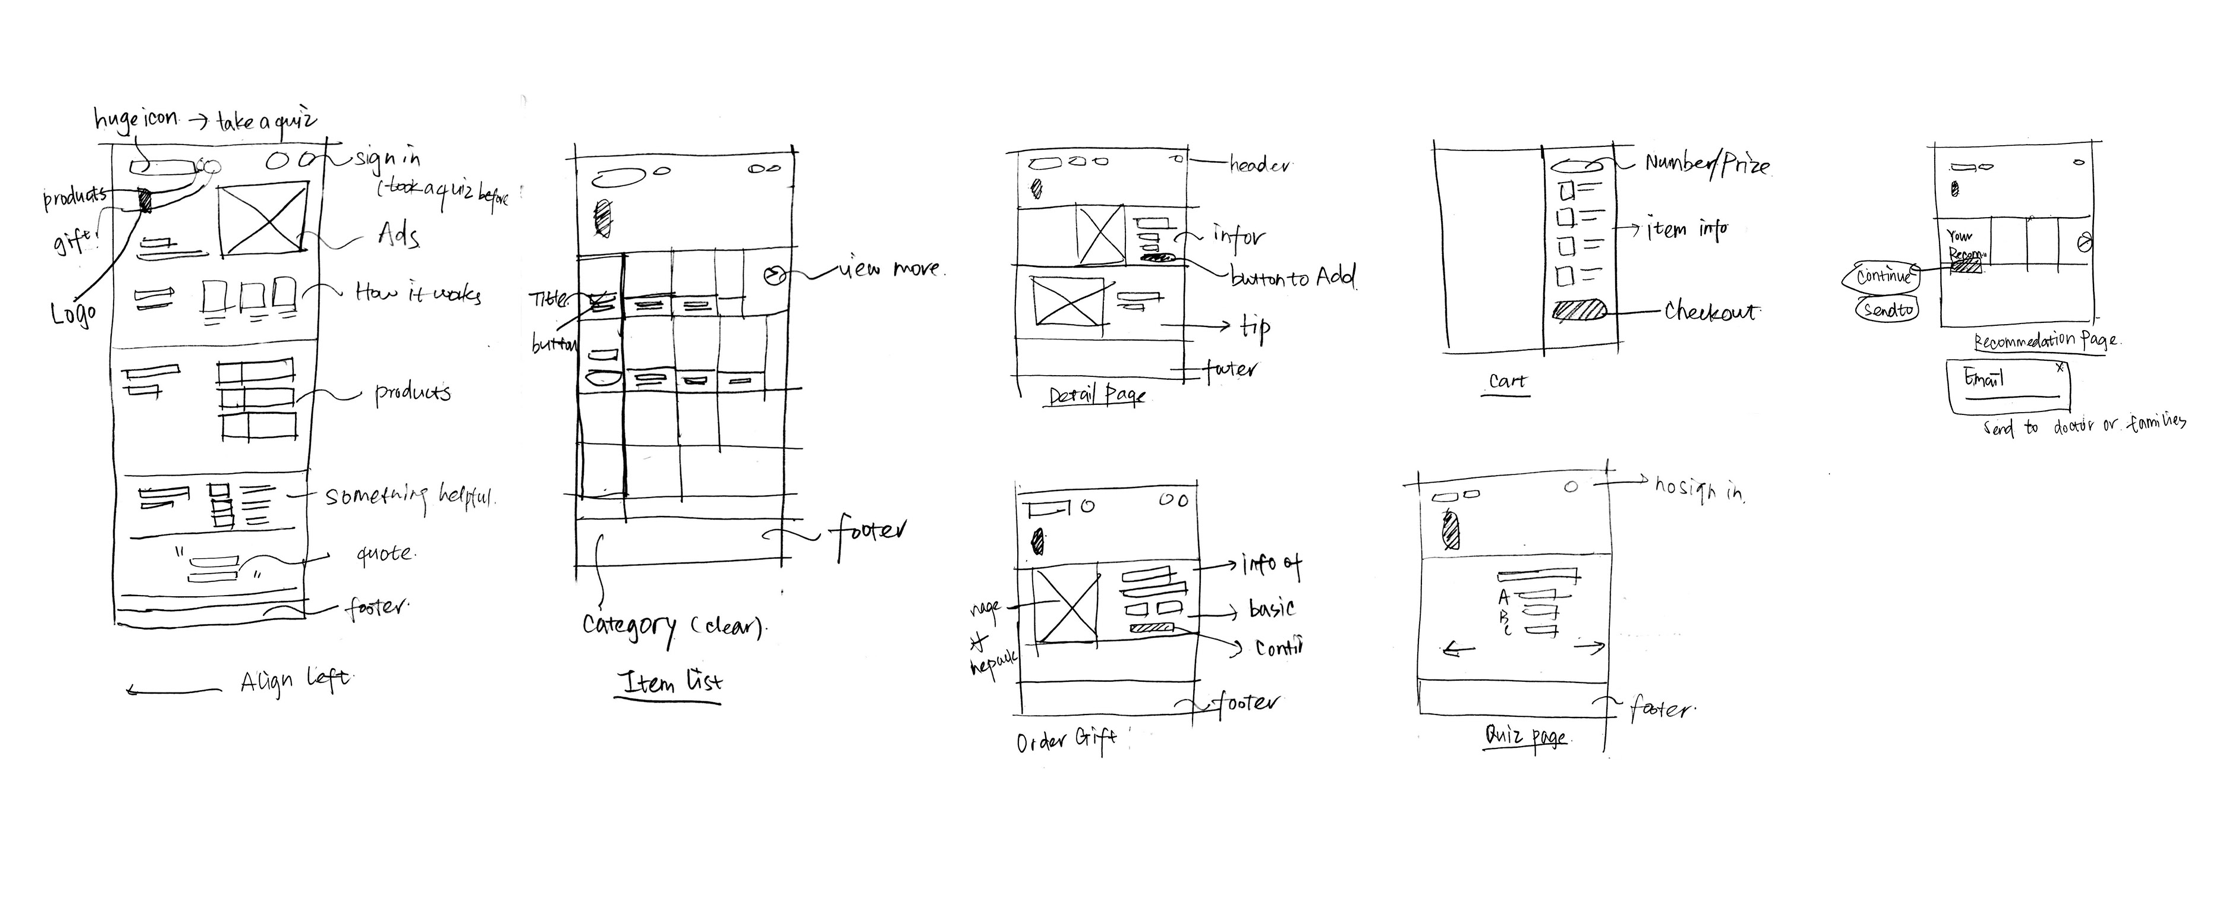 huge icon → take a quiz
sign in
(took a quiz before
products
gift
Logo
Ads
How it works
products
something helpful.
quote.
" "
footer.
← Align left
view more.
Title
button
footer
Category (clear).
Item list
header
infor
button to Add
→ tip
footer
Detail Page
Number/Prize
→ item info
checkout
Cart
Your
Recom..
Continue
send to
Recommedation Page.
Email x
Send to doctor or families
→ info of
→ basic
→ Conti
of
footer
Order Gift
→ no sign in.
A
B
C
← →
footer.
Quiz page